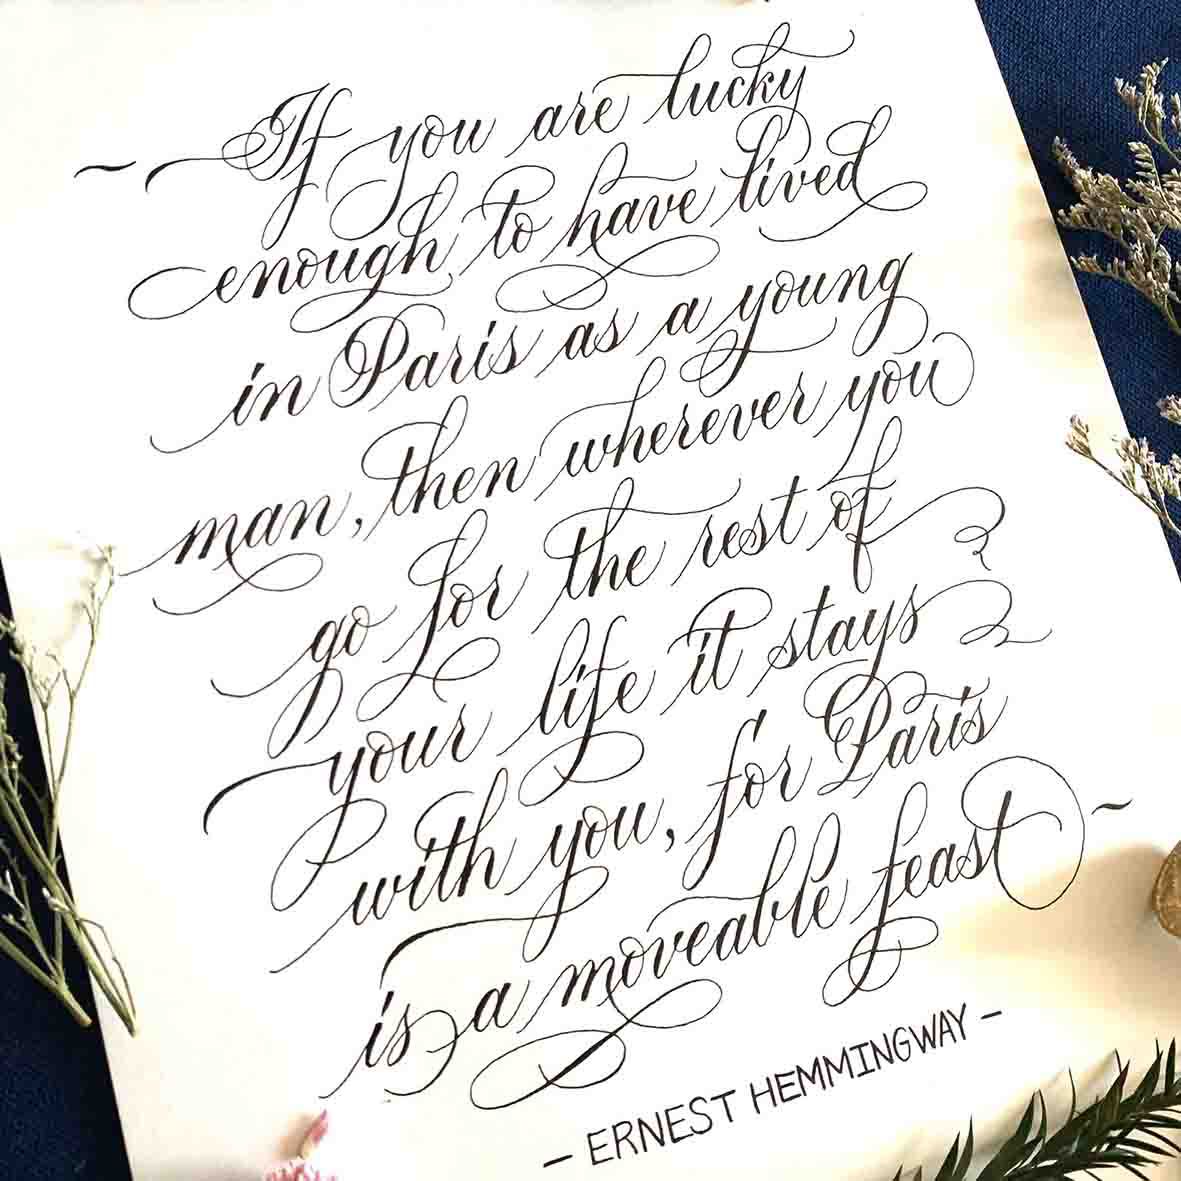 ~ If you are lucky
enough to have lived
in Paris as a young
man, then wherever you
go for the rest of
your life it stays
with you, for Paris
is a moveable feast ~
- ERNEST HEMMINGWAY -